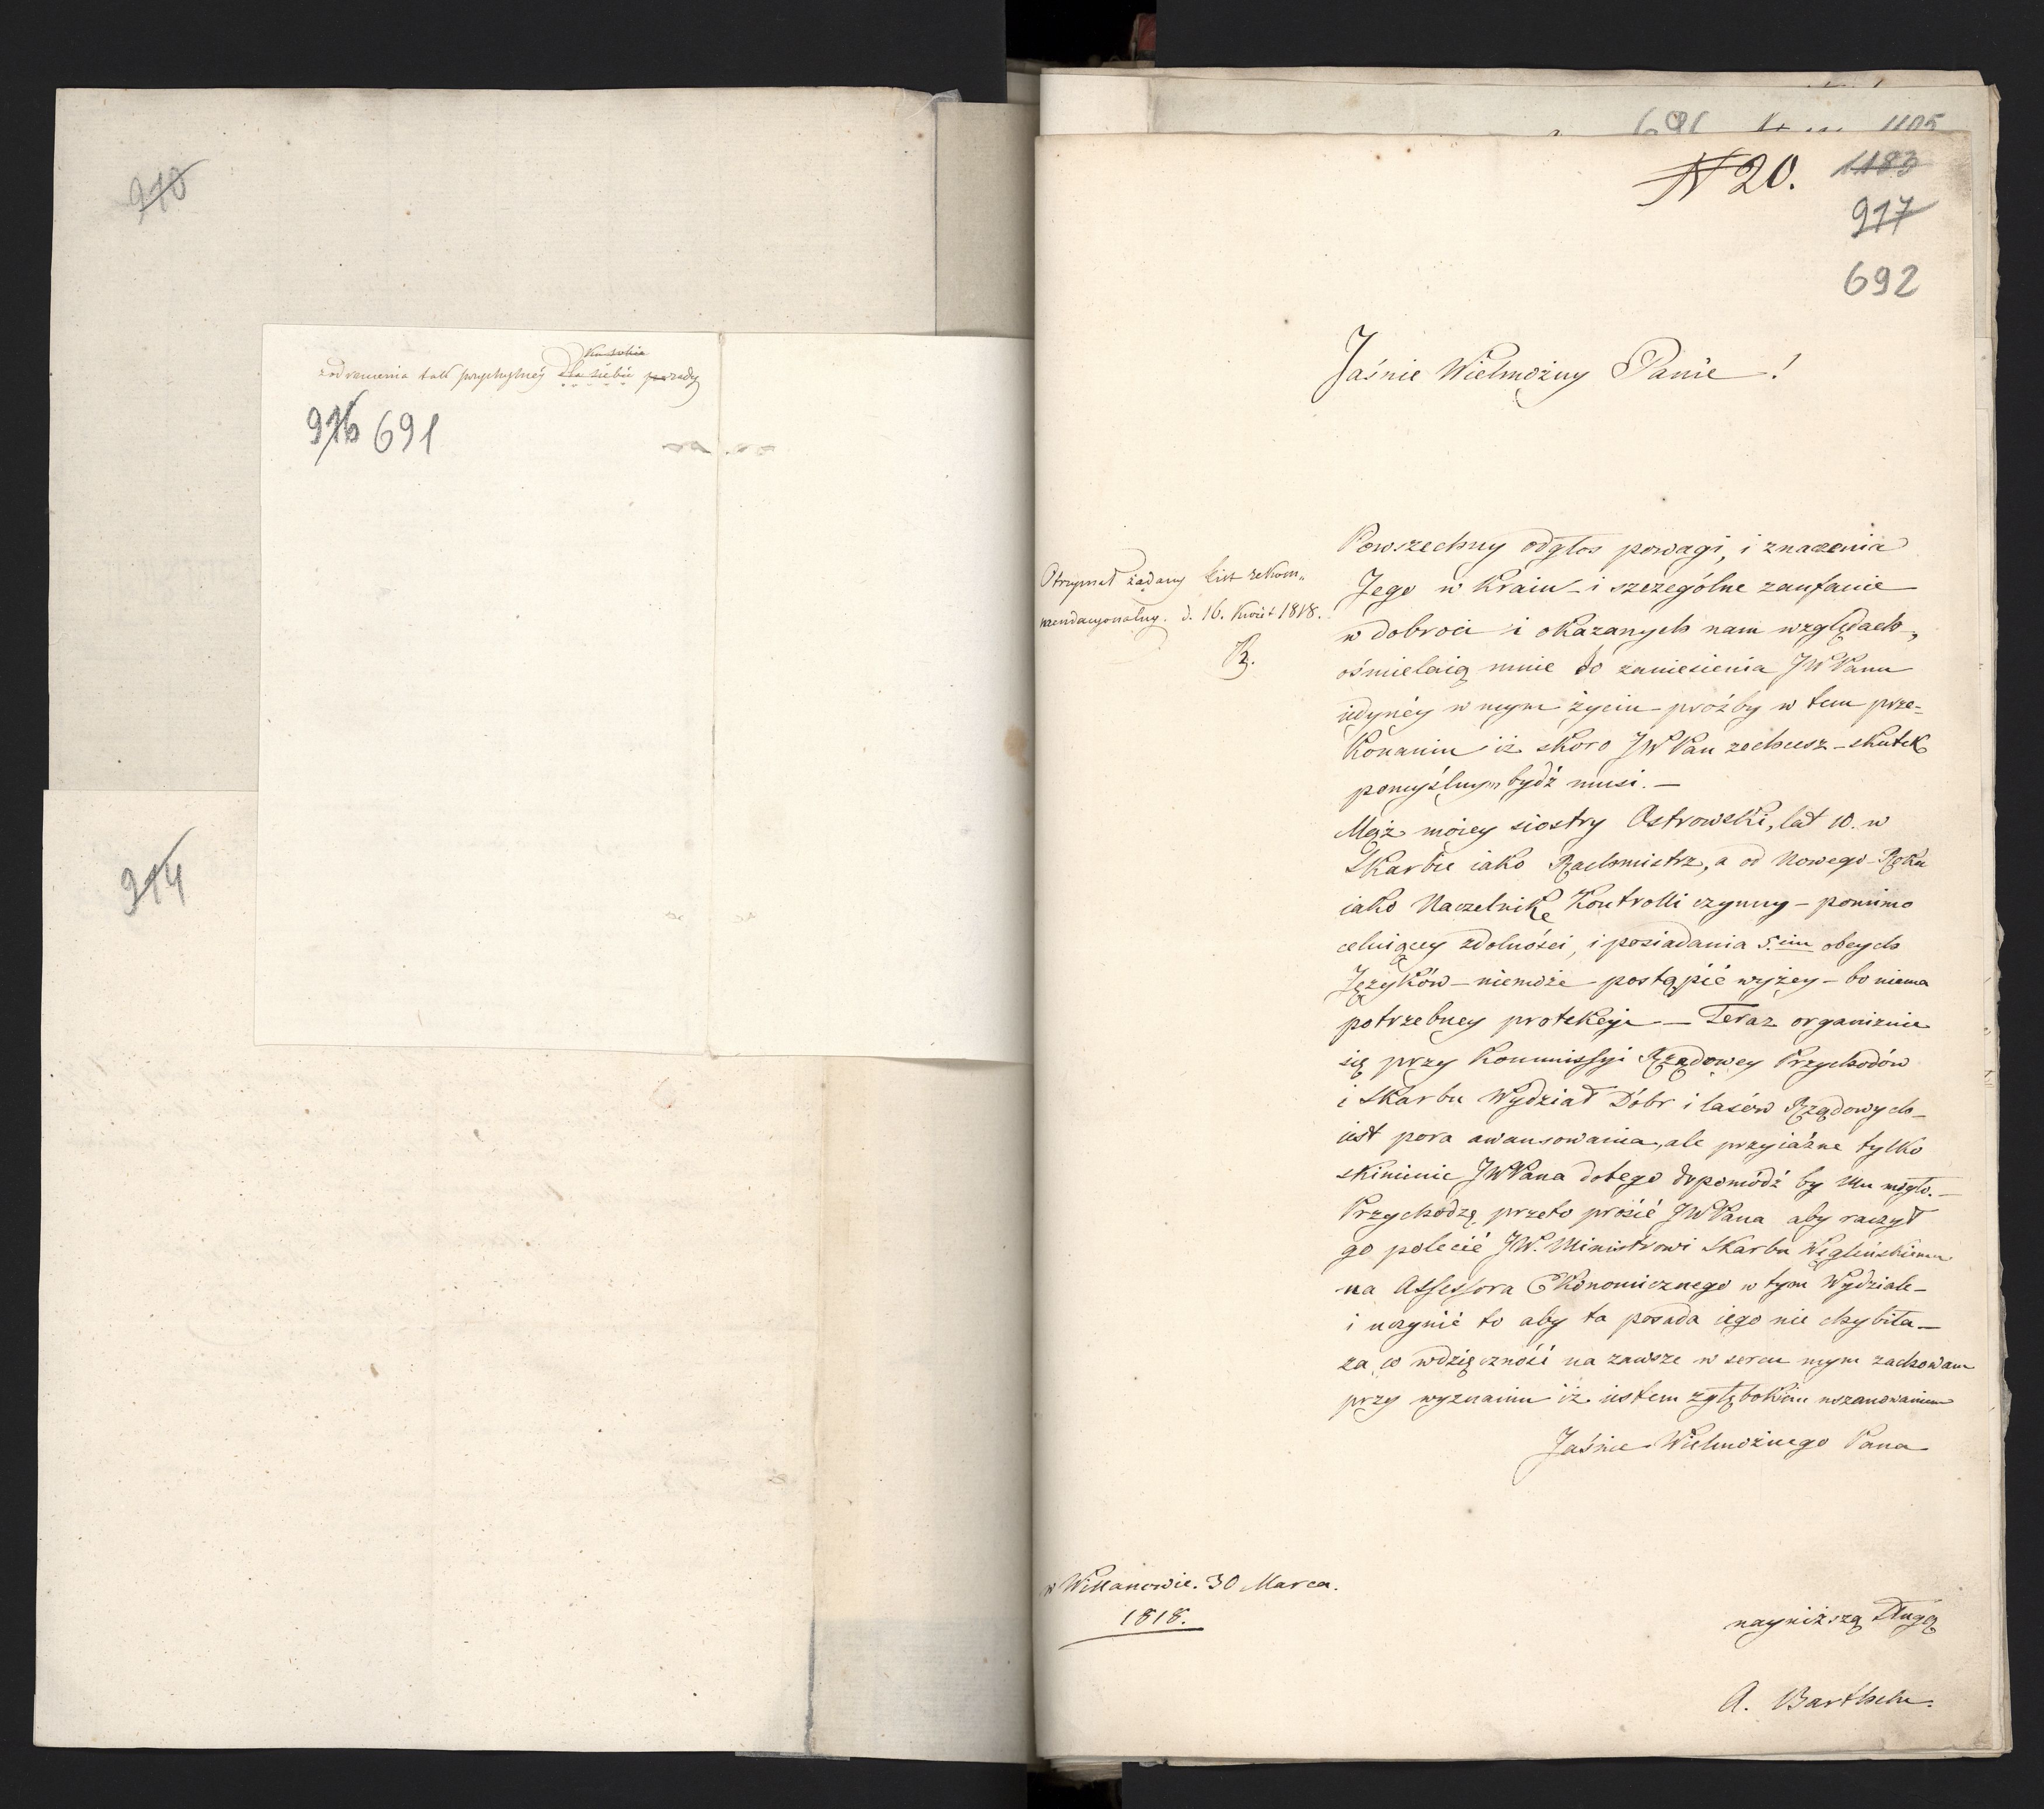 910
914
Ku sobie
zodrenienia tak przychylnéy dla siebie porady
916 691
691 1105
N 20. 1183
917
692
Jaśnie Wielmożny Panie !
Otrzymał żądany list rekom„
mendacyonalny. d. 16. Kwiet 1818.
Powszechny odgłos powagi, i znaczenia
Jego w Kraiu – i szczególne zaufanie
w dobroci i okazanych nam względach,
ośmielaią mnie do zaniesienia JWPanu
iedynéy w mym życiu prośby w tem prze-
konaniu iż skoro JWPan zechcesz – skutek
pomyślnym bydź musi. –
Mąż moiey siostry Ostrowski, lat 10. w
Skarbie iako Rachmistrz, a od Nowego Roku
iako Naczelnik Kontrolli czynny – pomimo
celuiącey zdolności, i posiadania 5.ciu obcych
Języków – niemoże postąpić wyżey – bo niema
potrzebney protekcyi – Teraz organizuie
się przy Kommissyi Rządowey Przychodów
i Skarbu Wydział Dóbr i lasów Rządowych –
iest pora awansowania, ale przyiaźne tylko
skinienie JWPana dotego dopomódź by Mu mogło. –
Przychodzę przeto prosić JWPana aby raczył
go polecić JW. Ministrowi Skarbu Węgleńskiemu
na Assessora Ekonomicznego w tym Wydziale –
i uczynić to aby ta posada iego nie chybiła –
za co wdzięczność na zawsze w sercu mym zachowam
przy wyznaniu iż iestem zgłębokiem uszanowaniem
Jaśnie Wielmożnego Pana
w Willanowie. 30 Marca.
1818.
nayniższą Sługą
A. Bartheln.